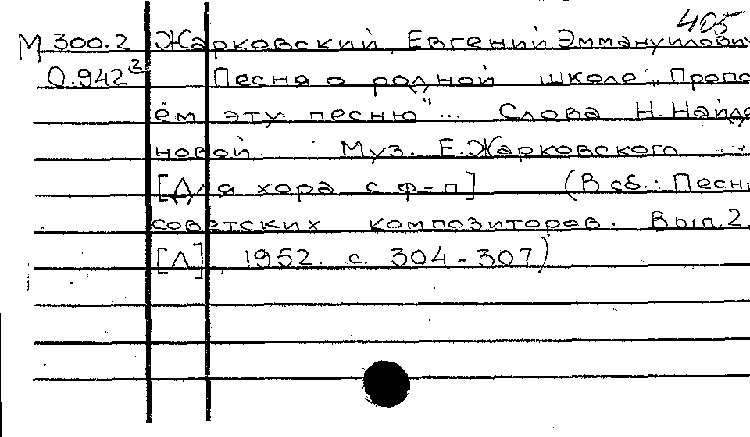 405
М 300.2 Жарковский, Евгений Эммануилович
О.942³ Песня о родной школе „Пропо-
ём эту песню"... Слова Н. Найде-
новой Муз. Е. Жарковского ...
[Для хора с ф-п] (В сб.: Песни
советских композиторов. Вып. 2.
[Л], 1952. с. 304-307)